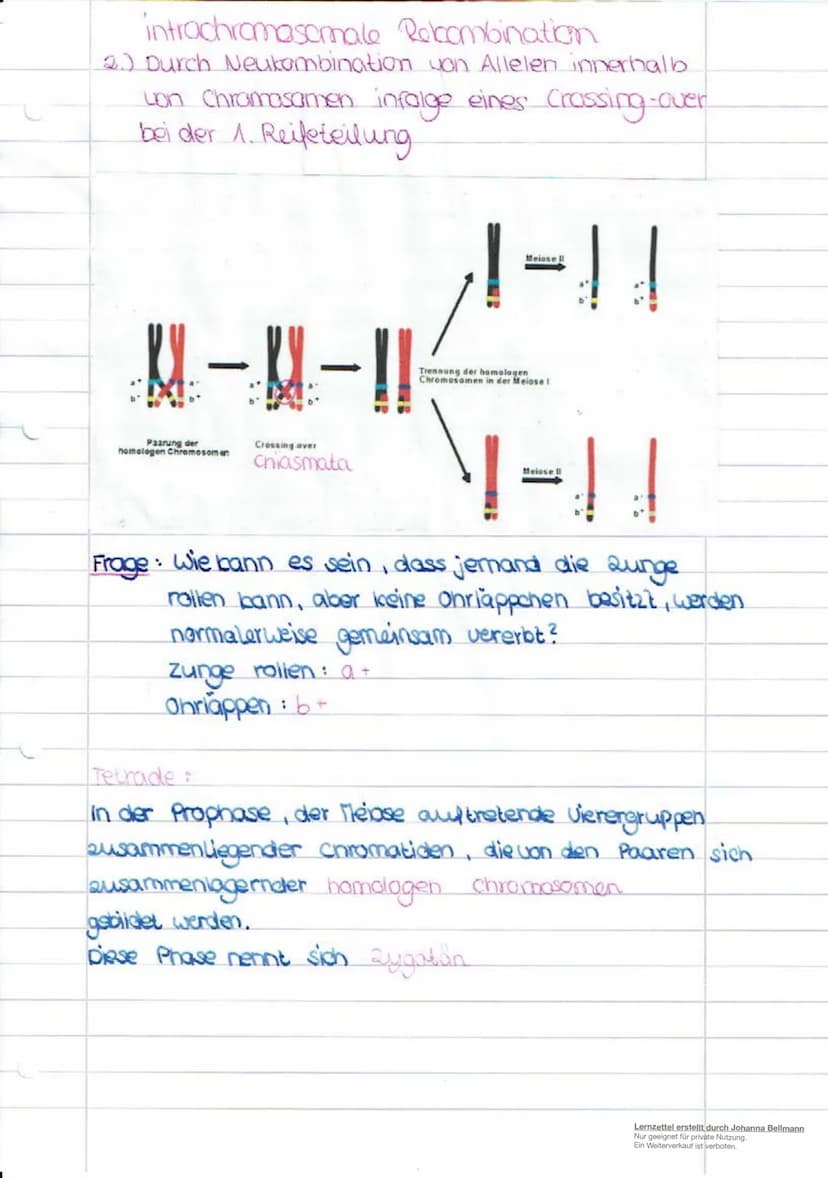 intrachromosomale Rekombination
2.) Durch Neukombination von Allelen innerhalb
von Chromosomen infolge eines Crossing-over
bei der 1. Reifeteilung
Meiose II
a+
b-
a+
b+
Trennung der homologen
Chromosomen in der Meiose I
a+
b-
a-
b+
a+
b-
a-
b+
Paarung der
homologen Chromosomen
Crossing over
Chiasmata
Meiose II
a-
b-
a-
b+
Frage: Wie kann es sein, dass jemand die Zunge
rollen kann, aber keine Ohrläppchen besitzt, werden
normalerweise gemeinsam vererbt?
Zunge rollen: a+
Ohrläppen: b+
Tetrade:
In der Prophase, der Meiose auftretende Vierergruppen
zusammenliegender Chromatiden, die von den Paaren sich
zusammenlagernder homologen Chromosomen
gebildet werden.
Diese Phase nennt sich Zygotän
Lernzettel erstellt durch Johanna Bellmann
Nur geeignet für private Nutzung.
Ein Weiterverkauf ist verboten.